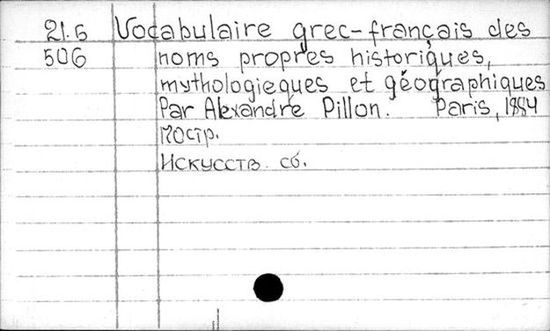 21.5 Vocabulaire grec-français des
506 noms propres historiques,
mythologieques et géographiques
Par Alexandre Pillon. Paris, 1884
Искусств. сб.